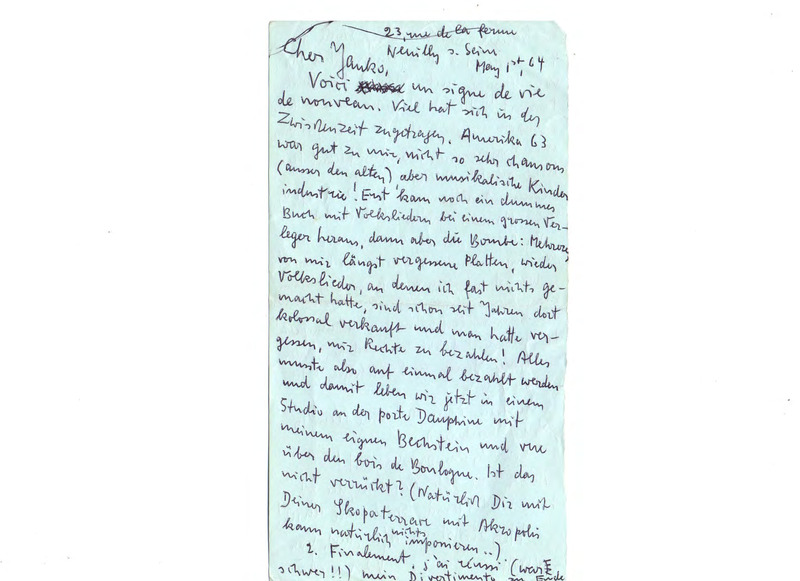 23, rue de la ferme
Neuilly s. Seine
May 1st, 64
Cher Yanko,
Voici un signe de vie
de nouveau. Viel hat sich in der
Zwischenzeit zugetragen. Amerika 63
war gut zu mir, nicht so sehr chansons
(ausser den alten) aber musikalische Kinder
industrie! Erst kam noch ein dummes
Buch mit Volksliedern bei einem grossen Ver-
leger heraus, dann aber die Bombe: Mehrere
von mir längst vergessene Platten, wieder
Volkslieder, an denen ich fast nichts ge-
macht hatte, sind schon seit Jahren dort
kolossal verkauft und man hatte ver-
gessen, mir Rechte zu bezahlen! Alles
musste also auf einmal bezahlt werden
und damit leben wir jetzt in einem
Studio an der porte Dauphine mit
meinem eignen Bechstein und vue
über den bois de Boulogne. Ist das
nicht verrückt? (Natürlich Dir mit
Deiner Skopaterrasse mit Akropolis
kann natürlich nichts imponieren..)
2. Finalement, j'ai réussi (war
schwer!!) mein Divertimento zu Ende